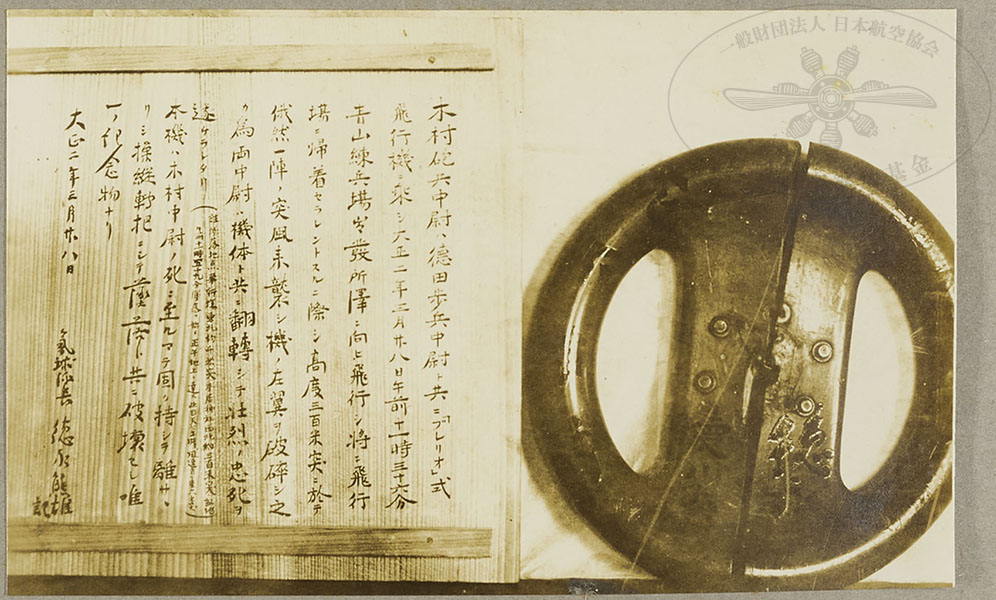 木村砲兵中尉ハ德田歩兵中尉ト共ニ「ブレリオ」式
飛行機ニ乘シ大正二年三月廿八日午前十一時三十六分
青山練兵場ヲ發所澤ニ向ヒ飛行シ將ニ飛行
場ニ帰着セラレントスルニ際シ高度三百米突ニ於テ
俄然一陣ノ突風来襲シ機ノ左翼ヲ破砕シ之
カ為両中尉ハ機体ト共ニ翻轉シテ壮烈ノ忠死ヲ
遂ケラレタリ
本機ハ木村中尉ノ死ニ至ルマテ固ク持シテ離サヽ
リシ操縦転把ニシテ墜落ト共ニ破壊セシ唯
一ノ紀念物ナリ
大正二年三月廿八日
氣球隊長 德永熊雄 記
一般財団法人 日本航空協会
基金